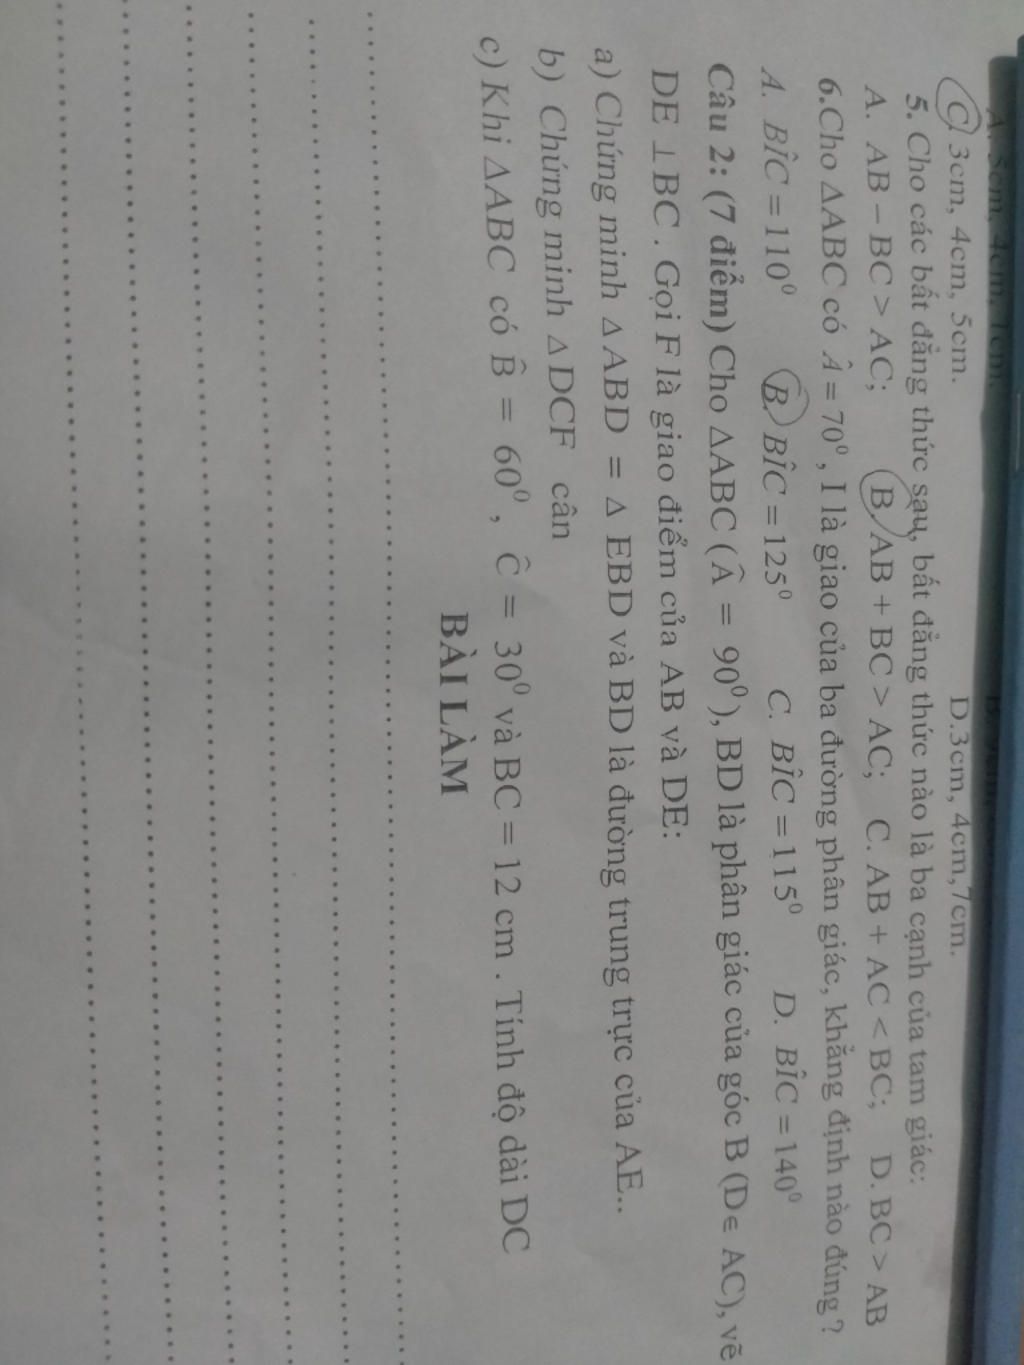 A. 5cm, 4cm, 1cm.
C. 3cm, 4cm, 5cm. D.3cm, 4cm,7cm.
5. Cho các bất đẳng thức sau, bất đẳng thức nào là ba cạnh của tam giác:
A. AB – BC > AC; B. AB + BC > AC; C. AB + AC < BC; D. BC > AB
6.Cho ΔABC có Â = 70⁰ , I là giao của ba đường phân giác, khẳng định nào đúng ?
A. BÎC = 110⁰ B. BÎC = 125⁰ C. BÎC = 115⁰ D. BÎC = 140⁰
Câu 2: (7 điểm) Cho ΔABC ( Â = 90⁰ ), BD là phân giác của góc B (D∈ AC), vẽ
DE ⊥ BC . Gọi F là giao điểm của AB và DE:
a) Chứng minh Δ ABD = Δ EBD và BD là đường trung trực của AE..
b) Chứng minh Δ DCF cân
c) Khi ΔABC có B̂ = 60⁰ , Ĉ = 30⁰ và BC = 12 cm . Tính độ dài DC
BÀI LÀM